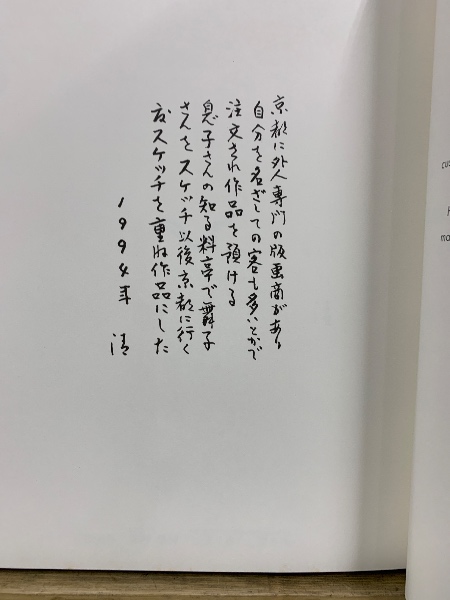 京都に外人専門の版画商があり
自分を名ざしての客も多いとかで
注文され作品を預ける
息子さんの知る料亭で舞子
さんをスケッチ以後京都に行く
度スケッチを重ね作品にした
1994年 清
cu
ma